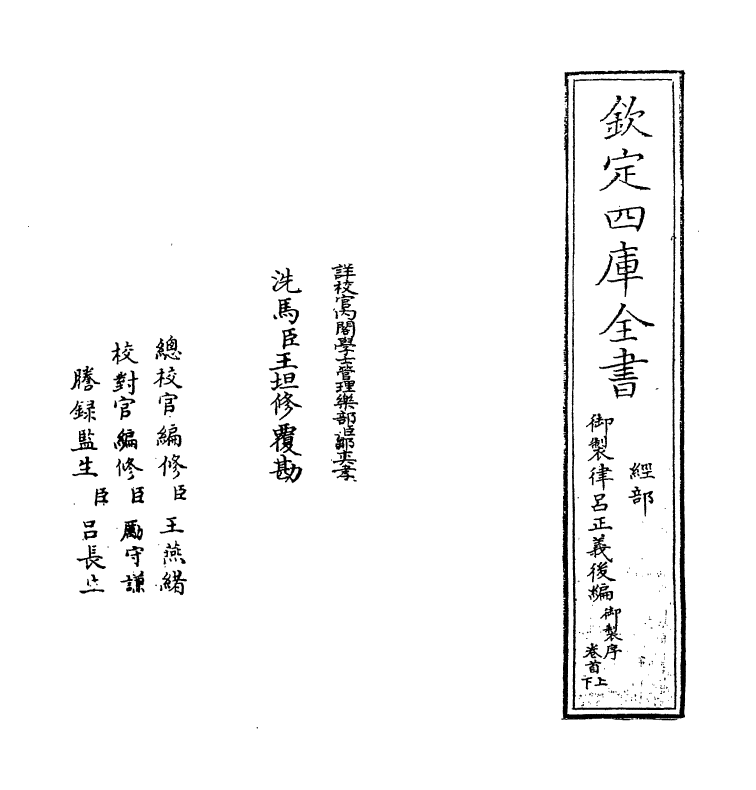 欽定四庫全書
經部
御製律呂正義後編
御製序
卷首上
下
詳校官內閣學士管理樂部臣鄒奕孝
洗馬臣王坦修覆勘
總校官編修臣王燕緒
校對官編修臣勵守謙
謄錄監生臣呂長